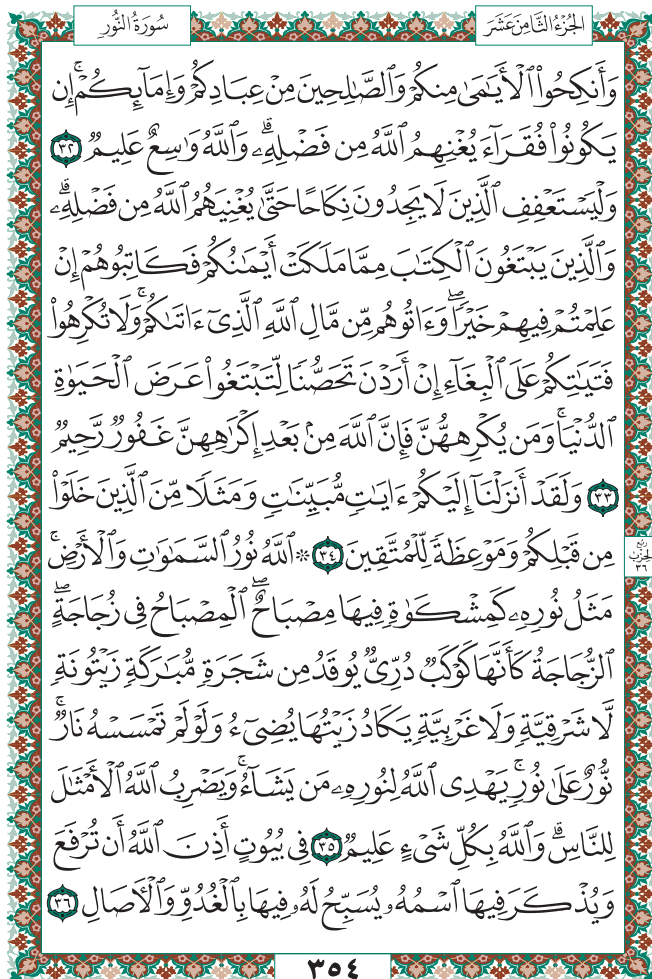 سُورَةُ النُّورِ
الجُزْءُ الثَّامِنَ عَشَرَ
وَأَنكِحُوا۟ ٱلْأَيَـٰمَىٰ مِنكُمْ وَٱلصَّـٰلِحِينَ مِنْ عِبَادِكُمْ وَإِمَآئِكُمْ ۚ إِن
يَكُونُوا۟ فُقَرَآءَ يُغْنِهِمُ ٱللَّهُ مِن فَضْلِهِۦ ۗ وَٱللَّهُ وَٰسِعٌ عَلِيمٌ ٣٢
وَلْيَسْتَعْفِفِ ٱلَّذِينَ لَا يَجِدُونَ نِكَاحًا حَتَّىٰ يُغْنِيَهُمُ ٱللَّهُ مِن فَضْلِهِۦ ۗ
وَٱلَّذِينَ يَبْتَغُونَ ٱلْكِتَـٰبَ مِمَّا مَلَكَتْ أَيْمَـٰنُكُمْ فَكَاتِبُوهُمْ إِنْ
عَلِمْتُمْ فِيهِمْ خَيْرًا ۖ وَءَاتُوهُم مِّن مَّالِ ٱللَّهِ ٱلَّذِىٓ ءَاتَىٰكُمْ ۚ وَلَا تُكْرِهُوا۟
فَتَيَـٰتِكُمْ عَلَى ٱلْبِغَآءِ إِنْ أَرَدْنَ تَحَصُّنًا لِّتَبْتَغُوا۟ عَرَضَ ٱلْحَيَوٰةِ
ٱلدُّنْيَا ۚ وَمَن يُكْرِههُّنَّ فَإِنَّ ٱللَّهَ مِنۢ بَعْدِ إِكْرَٰهِهِنَّ غَفُورٌ رَّحِيمٌ
٣٣ وَلَقَدْ أَنزَلْنَآ إِلَيْكُمْ ءَايَـٰتٍ مُّبَيِّنَـٰتٍ وَمَثَلًا مِّنَ ٱلَّذِينَ خَلَوْا۟
مِن قَبْلِكُمْ وَمَوْعِظَةً لِّلْمُتَّقِينَ ٣٤ ۞ ٱللَّهُ نُورُ ٱلسَّمَـٰوَٰتِ وَٱلْأَرْضِ ۚ
رُبْعُ الحِزْبِ ٣٦
مَثَلُ نُورِهِۦ كَمِشْكَوٰةٍ فِيهَا مِصْبَاحٌ ۖ ٱلْمِصْبَاحُ فِى زُجَاجَةٍ ۖ
ٱلزُّجَاجَةُ كَأَنَّهَا كَوْكَبٌ دُرِّىٌّ يُوقَدُ مِن شَجَرَةٍ مُّبَـٰرَكَةٍ زَيْتُونَةٍ
لَّا شَرْقِيَّةٍ وَلَا غَرْبِيَّةٍ يَكَادُ زَيْتُهَا يُضِىٓءُ وَلَوْ لَمْ تَمْسَسْهُ نَارٌ ۚ
نُّورٌ عَلَىٰ نُورٍ ۗ يَهْدِى ٱللَّهُ لِنُورِهِۦ مَن يَشَآءُ ۚ وَيَضْرِبُ ٱللَّهُ ٱلْأَمْثَـٰلَ
لِلنَّاسِ ۗ وَٱللَّهُ بِكُلِّ شَىْءٍ عَلِيمٌ ٣٥ فِى بُيُوتٍ أَذِنَ ٱللَّهُ أَن تُرْفَعَ
وَيُذْكَرَ فِيهَا ٱسْمُهُۥ يُسَبِّحُ لَهُۥ فِيهَا بِٱلْغُدُوِّ وَٱلْـَٔاصَالِ ٣٦
٣٥٤